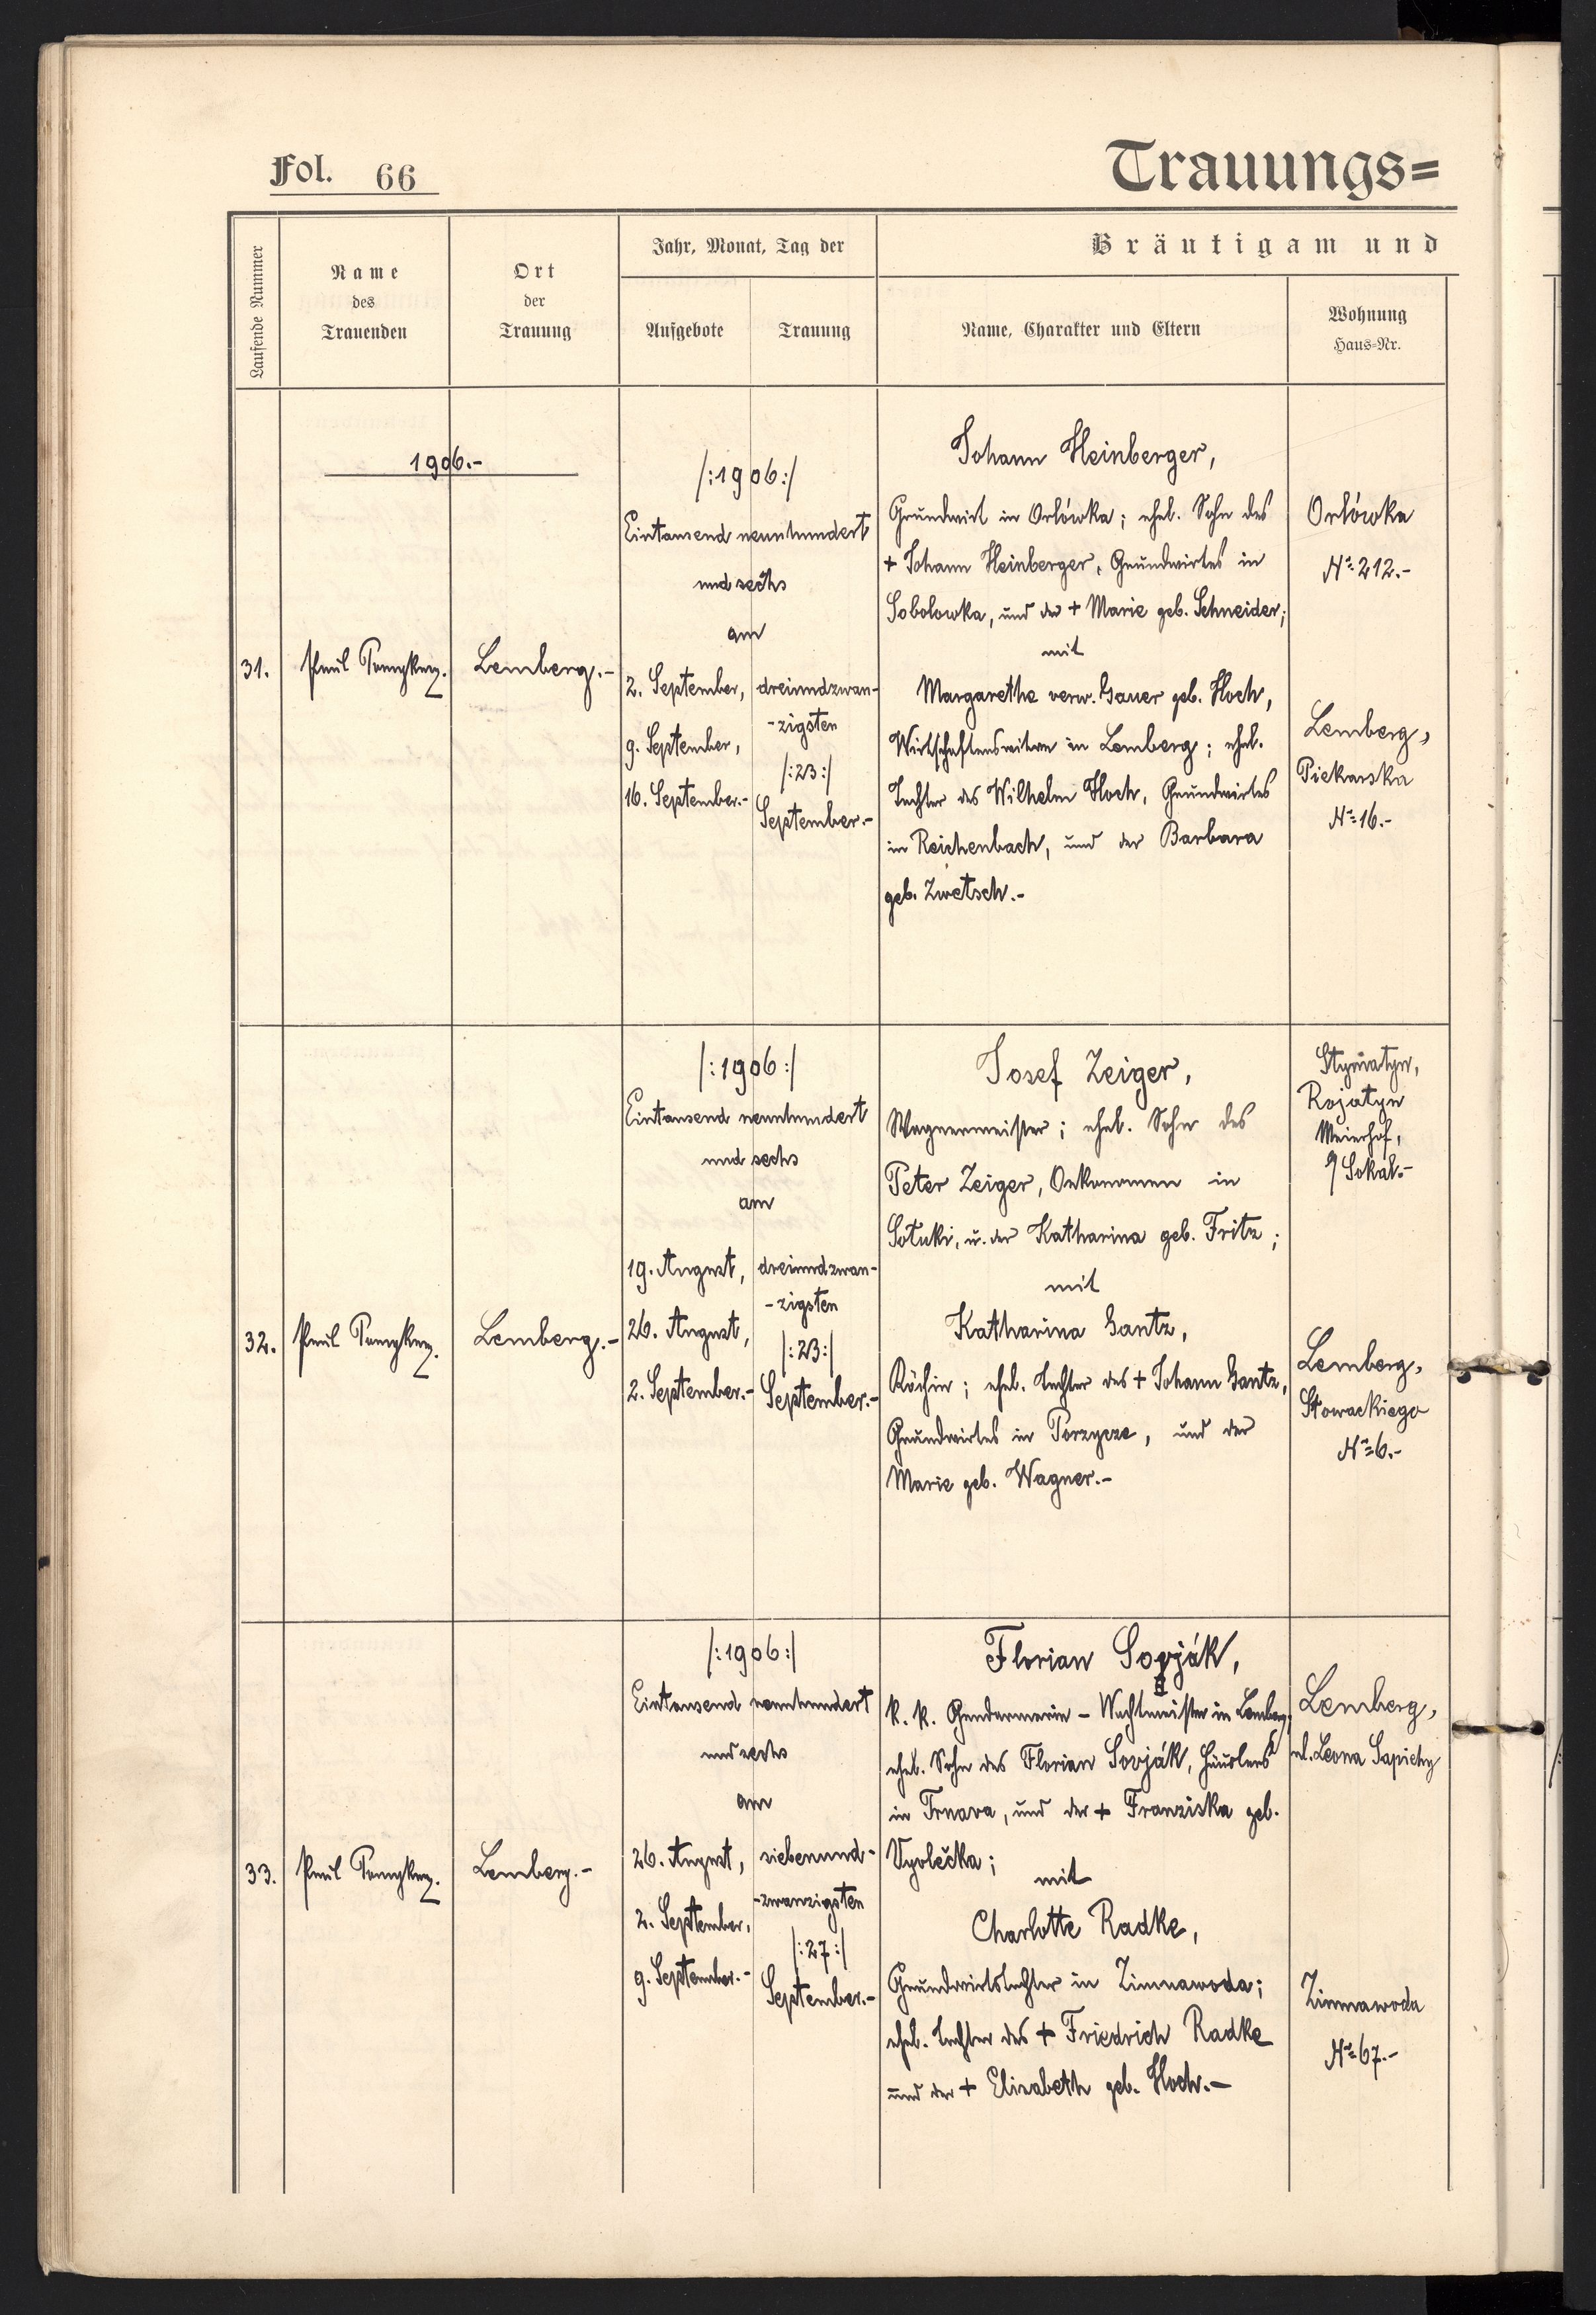 Fol. 66
Trauungs=
Laufende Nummer
Name
des
Trauenden
Ort
der
Trauung
Jahr, Monat, Tag der
Aufgebote
Trauung
Bräutigam und
Name, Charakter und Eltern
Wohnung
Haus=Nr.
1906.-
31.
Lemberg.-
/:1906:/
Eintausend neunhundert
und sechs
am
2. September,
9. September,
16. September.-
dreiundzwan-
-zigsten
/:23:/
September.-
Johann Heinberger,
Grundwirt in Orłówka; ehel. Sohn des
+ Johann Heinberger, Grundwirtes in
Sobolowka, und der + Marie geb. Schneider;
mit
Margarethe verw. Gauer geb. Hoch,
Wirtschafterswitwe in Lemberg; ehel.
Tochter des Wilhelm Hoch, Grundwirtes
in Reichenbach, und der Barbara
geb. Zwetsch.-
Orłówka
No 212.-
Lemberg,
Piekarska
No 16.-
32.
Lemberg.-
/:1906:/
Eintausend neunhundert
und sechs
am
19. August,
26. August,
2. September.-
dreiundzwan-
-zigsten
/:23:/
September.-
Josef Zeiger,
Wagnermeister; ehel. Sohn des
Peter Zeiger, Oekonomen in
Sotuki, u. der Katharina geb. Fritz;
mit
Katharina Gantz,
Köchin; ehel. Tochter des + Johann Gantz,
Grundwirtes in Porzycze, und der
Marie geb. Wagner.-
Rojatyn
Meierhof,
Sokal.-
Lemberg,
Słowackiego
No 6.-
33.
Lemberg.-
/:1906:/
Eintausend neunhundert
und sechs
am
26. August,
2. September,
9. September.-
siebenund-
-zwanzigsten
/:27:/
September.-
Florian Sovják,
k. k. Gendarmerie - Wachtmeister in Lemberg;
ehel. Sohn des Florian Sovják, Häuslers
in Trnava, und der + Franziska geb.
Vyolečka;
mit
Charlotte Radke,
Grundwirtstochter in Zimnawoda;
ehel. Tochter des + Friedrich Radke
und der + Elisabeth geb. Hoch.-
Lemberg,
ul. Leona Sapiehy
Zimnawoda
No 67.-